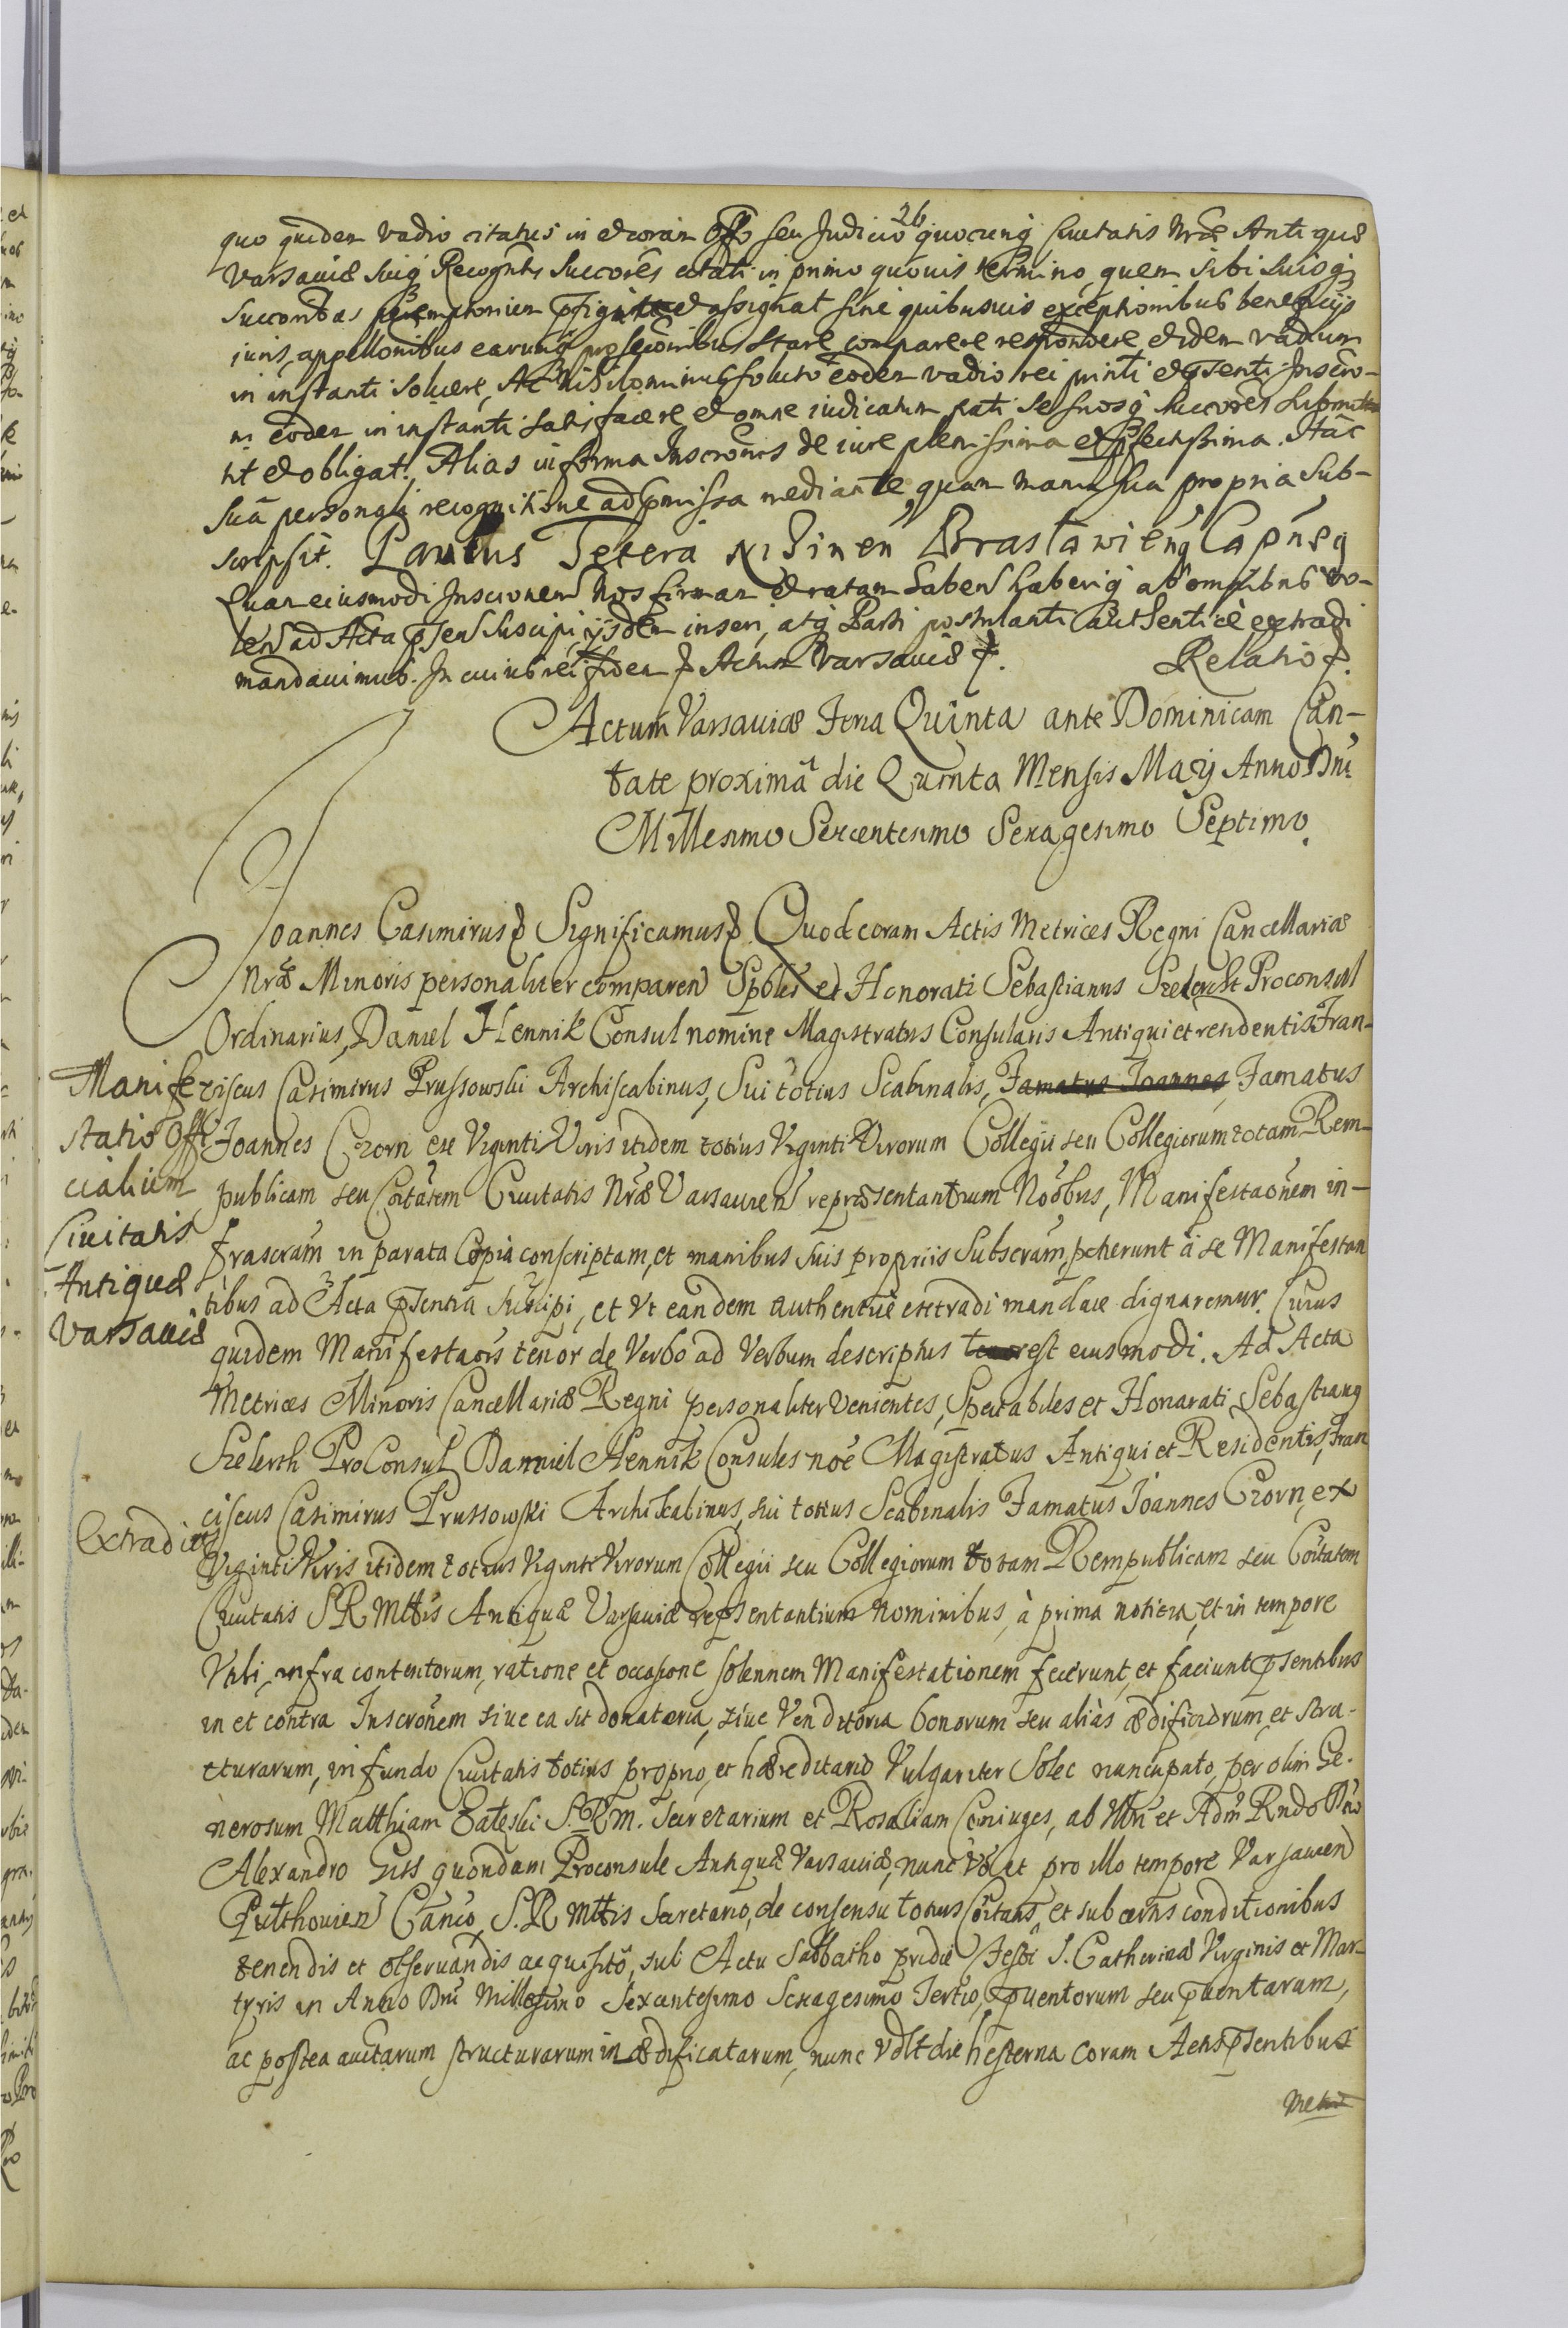 26
quo quidem vadio citatus in et coram Offo seu Judicio quocunq Civitatis Nrae Antiquae
Varsaviae suiq Recognts Succores citati in primo quovis termino, quem sibi suisq
Succoribus peremptorium pfigit et assignat sine quibusvis exceptionibus beneficijs
iuris, appellonibus earumq prosecōnibus stare comparere respondere et idem vadium
in instanti solvere, Ac nihilominus soluto eodem vadio rei printi et psenti Inscro-
ni eodem in instanti satisfacere et omne iudicatum pati se suosq Succores submit-
tit et obligat. Alias in forma Inscronis de iure plenissima et pfectissima. Hac
sua personali recognitione ad pmissa mediante, quam manu sua propria sub-
scripsit. Paulus Tetera Braslawienq Capneq
Quam eiusmodi Inscronem Nos firmam et ratam haben haberiq ab omnibus vo-
len ad Acta psen suscipi, ijsdem inseri, atq Parti postulanti authentice extradi
mandavimus. In cuius rei fidem p Actum Varsaviae p. Relatio p.
Actum Varsaviae Feria Quinta ante Dominicam Can-
tate proxima die Quinta Mensis Maij Anno Dni
Millesimo Sexcentesimo Sexagesimo Septimo.
Joannes Casimirus p Significamus p. Quod coram Actis Metrices Regni Cancellariae
Nrae Minoris personaliter comparen Spbles et Honorati Sebastianus Proconsul
Ordinarius, Daniel Hennik Consul nomine Magistratus Consularis Antiqui et residentis, Fran-
ciscus Casimirus Prussowski Archiscabinus, Sui totius Scabinalis, Famatus Joannes, Famatus
Joannes Czorn ex Viginti Viris itidem totius Viginti Virorum Collegij seu Collegiorum totam Rem-
publicam seu Cōitatem Civitatis Nrae Varsavien repraesentantium Noōbus, Manifestaōnem in-
frascram in parata Copia conscriptam, et manibus suis proprijs Subscram, petierunt à se Manifestan
tibus ad Acta psentia suscipi, et Vt eandem authentice extradi mandare dignaremur. Cuius
quidem Manifestaōis tenor de Verbo ad Verbum descriptus tenor est eiusmodi. Ad Acta
Metrices Minoris Cancellariae Regni personaliter Venientes, Spectabiles et Honorati Sebastianq
ProConsul Danniel Hennik Consules noe Magistratus Antiqui et Residentis, Fran
ciscus Casimirus Prussowski Archiscabinus, sui totius Scabinalis Famatus Joannes Czorn, ex
Viginti Viris itidem totius Viginti Virorum Collegij seu Collegiorum totam Rempublicam seu Cōitatem
Civitatis S R Mttis Antiquae Varsaviae repsentantium nominibus, à prima notitia, et in tempore
Vtili, infra contentorum, ratione et occasione solennem Manifestationem fecerunt, et faciunt psentibus
in et contra Inscronem sive ea sit donatoria, sive Venditoria bonorum seu aliàs aedificiorum, et stru-
cturarum, in fundo Civitatis totius proprio, et haereditario Vulgariter Solec nuncupato, per olim Ge-
nerosum Matthiam S.R.M. Secretarium et Rosaliam Coniuges, ab et Adm Rndo Dno
Alexandro Giss quondam Proconsule Antiquae Varsaviae, nunc Vo et pro illo tempore Varsavien
Pultovien Canco, S.R Mttis Secretario, de consensu totius Cōitatis, et sub certis conditionibus
tenendis et observandis acquisito, sub Actu Sabbatho pridie Festi S. Catherinae Virginis et Mar-
tyris in Anno Dni Millesimo Sexcentesimo Sexagesimo Tertio, pventorum seu pventarum,
ac postea auctarum structurarum inaedificatarum, nunc Vdlt die hesterna coram Actis psentibus
Metri
Manife
statio Offi
cialium
Civitatis
Antiquae
Varsaviae
Extradit